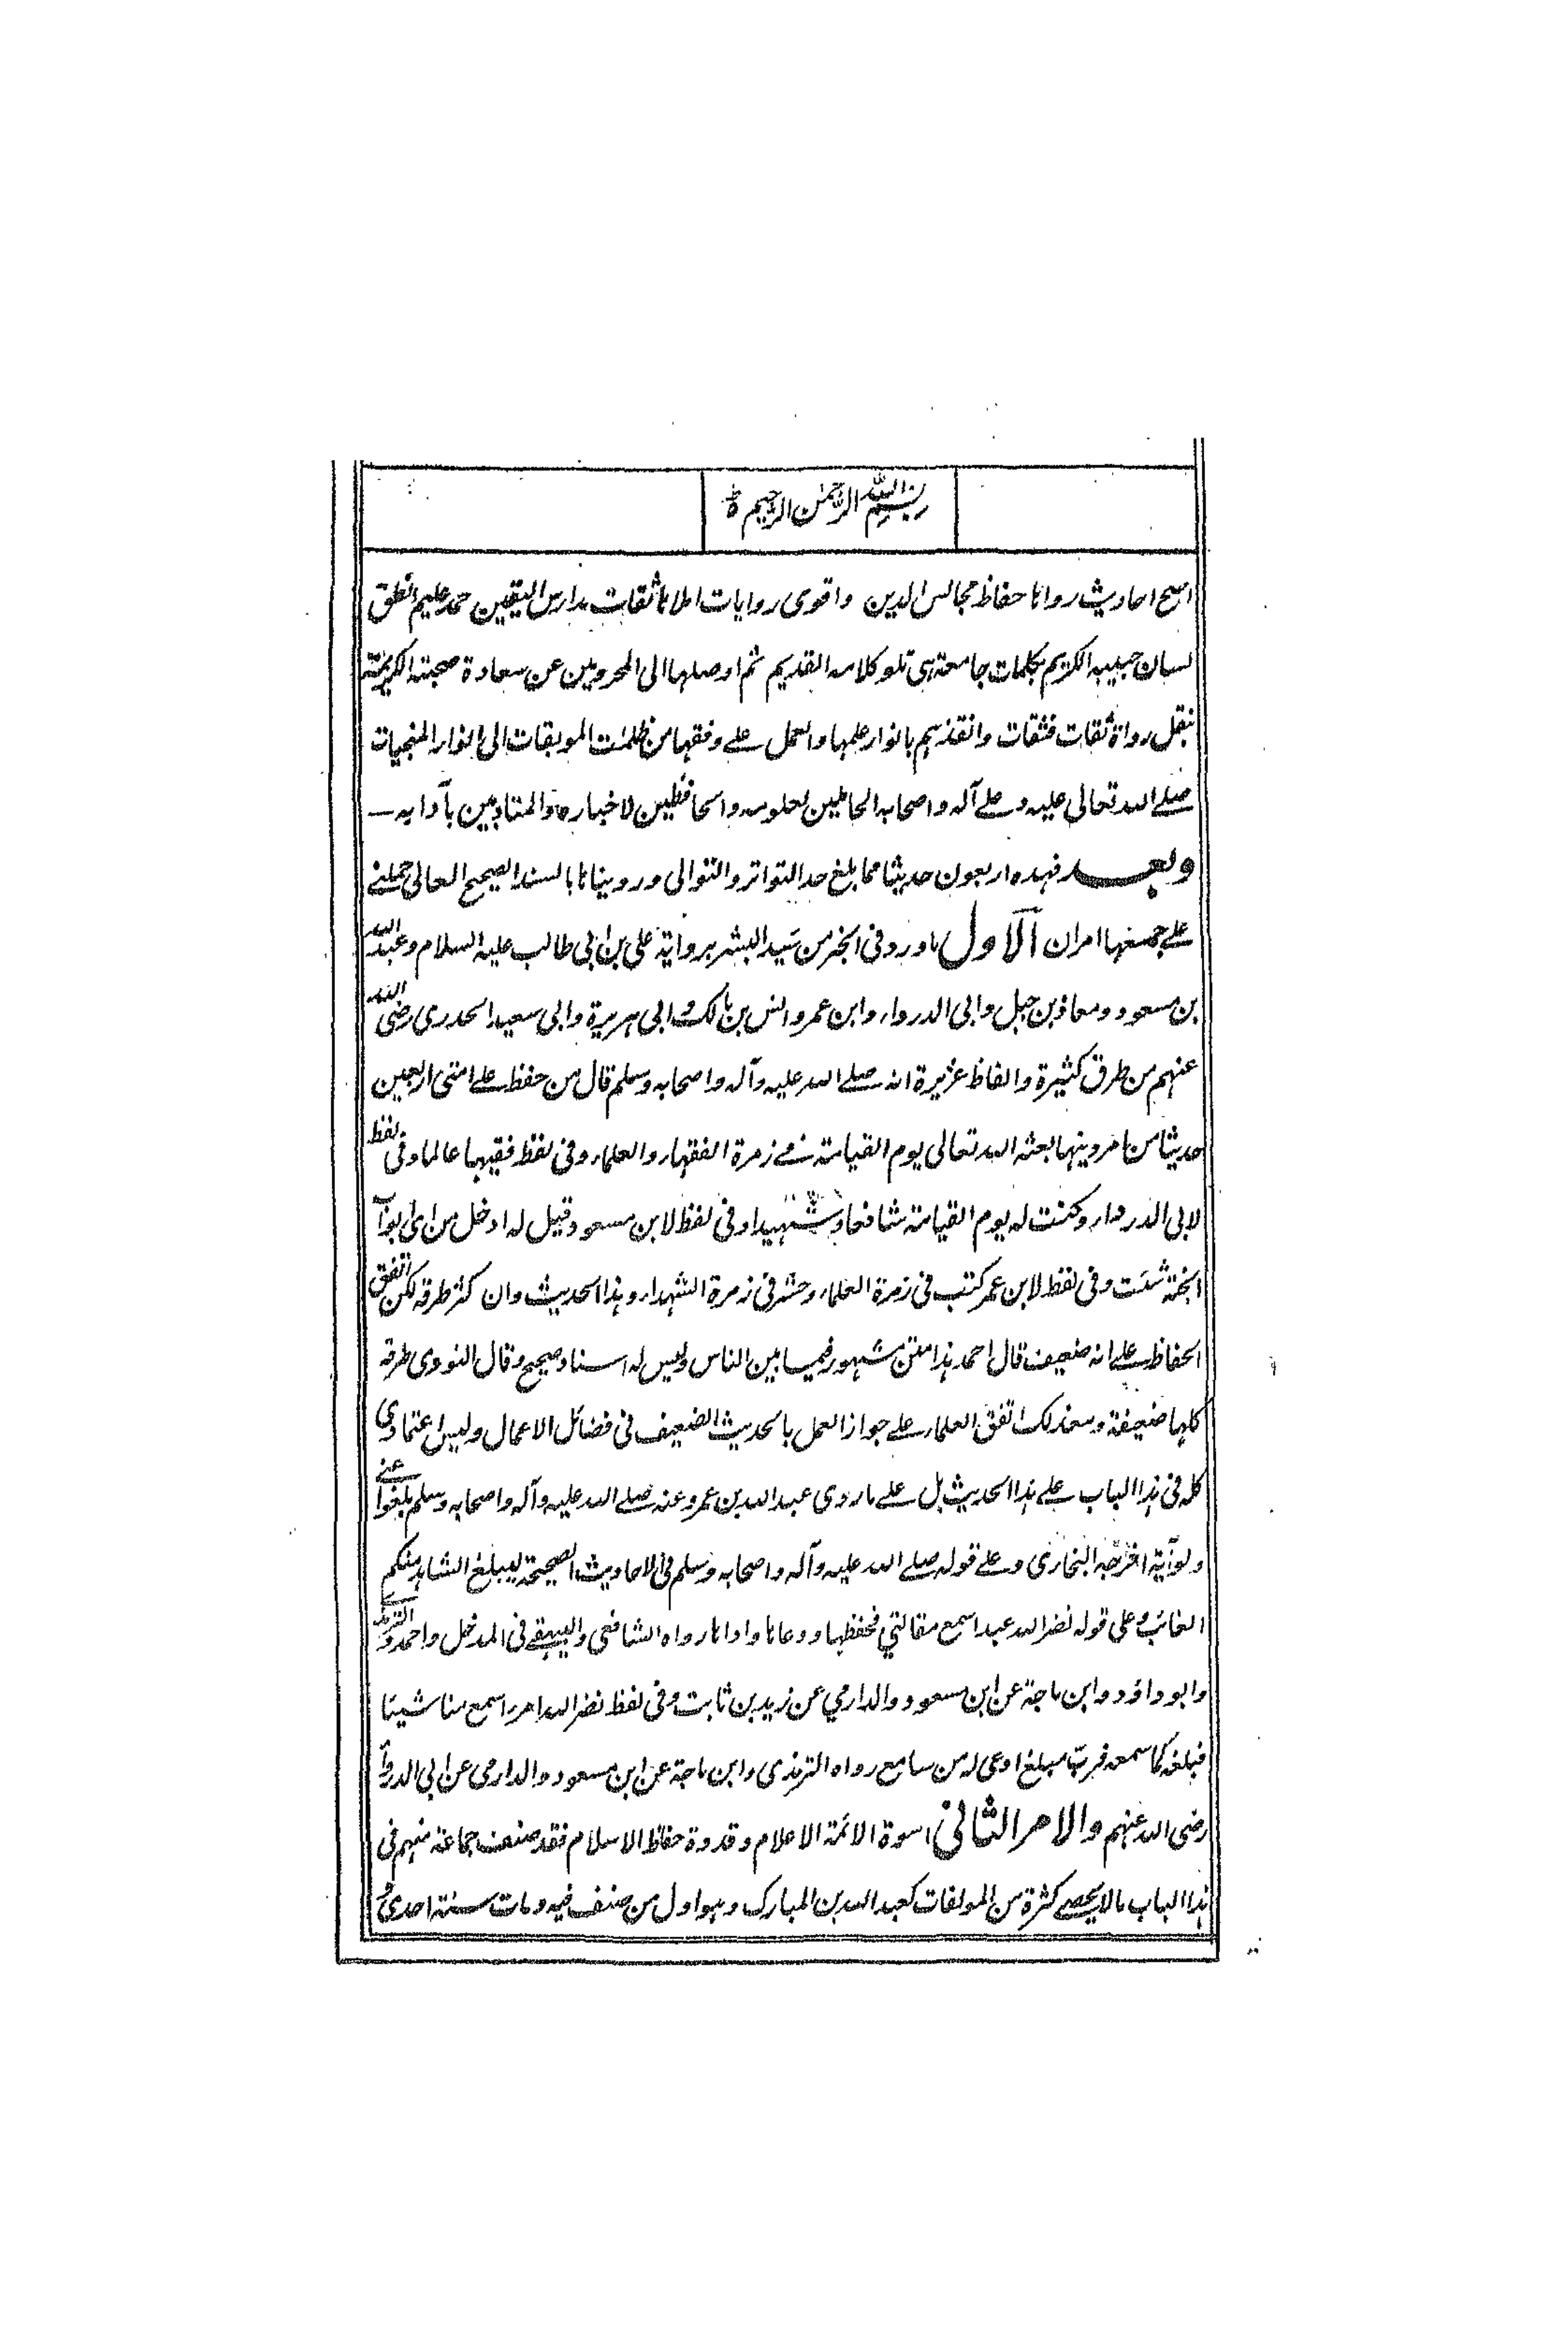 بسم الله الرحمن الرحيم
اصح احاديث رواها حفاظ مجالس الدين واقوى روايات املاها ثقات مدارس اليقين حمد عليم انطق
لسان حبيبه الكريم بكلمات جامعة هى تلو كلامه القديم ثم اوصلها الى المحرومين عن سعادة صحبته الكريمة
بنقل رواة ثقات فثقات وانقذهم بانوار علمها والعمل على وفقها من ظلمت الموبقات الى انوار المنجيات
صلے الله تعالى عليه وعلے آله واصحابه الحاملين لعلومه والحافظين لاخباره والمتادبين بآدابه —
وبعد فهذه اربعون حديثا مما بلغ حد التواتر والتوالى ورويناها بالسند الصحيح العالى حملنے
علے جمعها امران الاول ما ورد فى الخبر من سيد البشر برواية على بن ابى طالب عليه السلام وعبد الله
بن مسعود ومعاذ بن جبل وابى الدرداء وابن عمر وانس بن مالك وابى هريرة وابى سعيد الخدرى رضى الله
عنهم من طرق كثيرة والفاظ غزيرة انه صلے الله عليه وآله واصحابه وسلم قال من حفظ علے امتى اربعين
حديثا من امر دينها بعثه الله تعالى يوم القيامة فے زمرة الفقهاء والعلماء وفى لفظ فقيها عالما وفى لفظ
لابى الدرداء وكنت له يوم القيامة شافعا وشهيدا وفى لفظ لابن مسعود قيل له ادخل من اى ابواب
الجنة شئت وفى لفظ لابن عمر كتب فى زمرة العلماء وحشر فى زمرة الشهداء وهذا الحديث وان كثر طرقه لكن اتفق
الحفاظ علے انه ضعيف قال احمد هذا متن مشهور فيما بين الناس وليس له اسناد صحيح وقال النووى طرقه
كلها ضعيفة ومع ذلك اتفق العلماء علے جواز العمل بالحديث الضعيف فى فضائل الاعمال وليس اعتمادى
كله فى هذا الباب علے هذا الحديث بل علے ما روى عبد الله بن عمرو عنه صلے الله عليه وآله واصحابه وسلم بلغوا عنے
ولو آية اخرجه البخارى وعلے قوله صلے الله عليه وآله واصحابه وسلم فى الاحاديث الصحيحة ليبلغ الشاهد منكم
الغائب وعلى قوله نضر الله عبدا سمع مقالتي فحفظها ووعاها واداها رواه الشافعى والبيهقے فى المدخل واحمد والترمذے
وابو داؤد وابن ماجة عن ابن مسعود والدارمي عن زيد بن ثابت وفى لفظ نضر الله امرء اسمع منا شيئا
فبلغه كما سمعه فرب مبلغ اوعى له من سامع رواه الترمذى وابن ماجة عن ابن مسعود والدارمى عن ابى الدرداء
رضى الله عنهم والامر الثانى اسوة الائمة الاعلام وقدوة حفاظ الاسلام فقد صنف جماعة منهم فى
هذا الباب مالا يحصے كثرة من المولفات كعبد الله بن المبارك وهو اول من صنف فيه ومات سنة احدى و